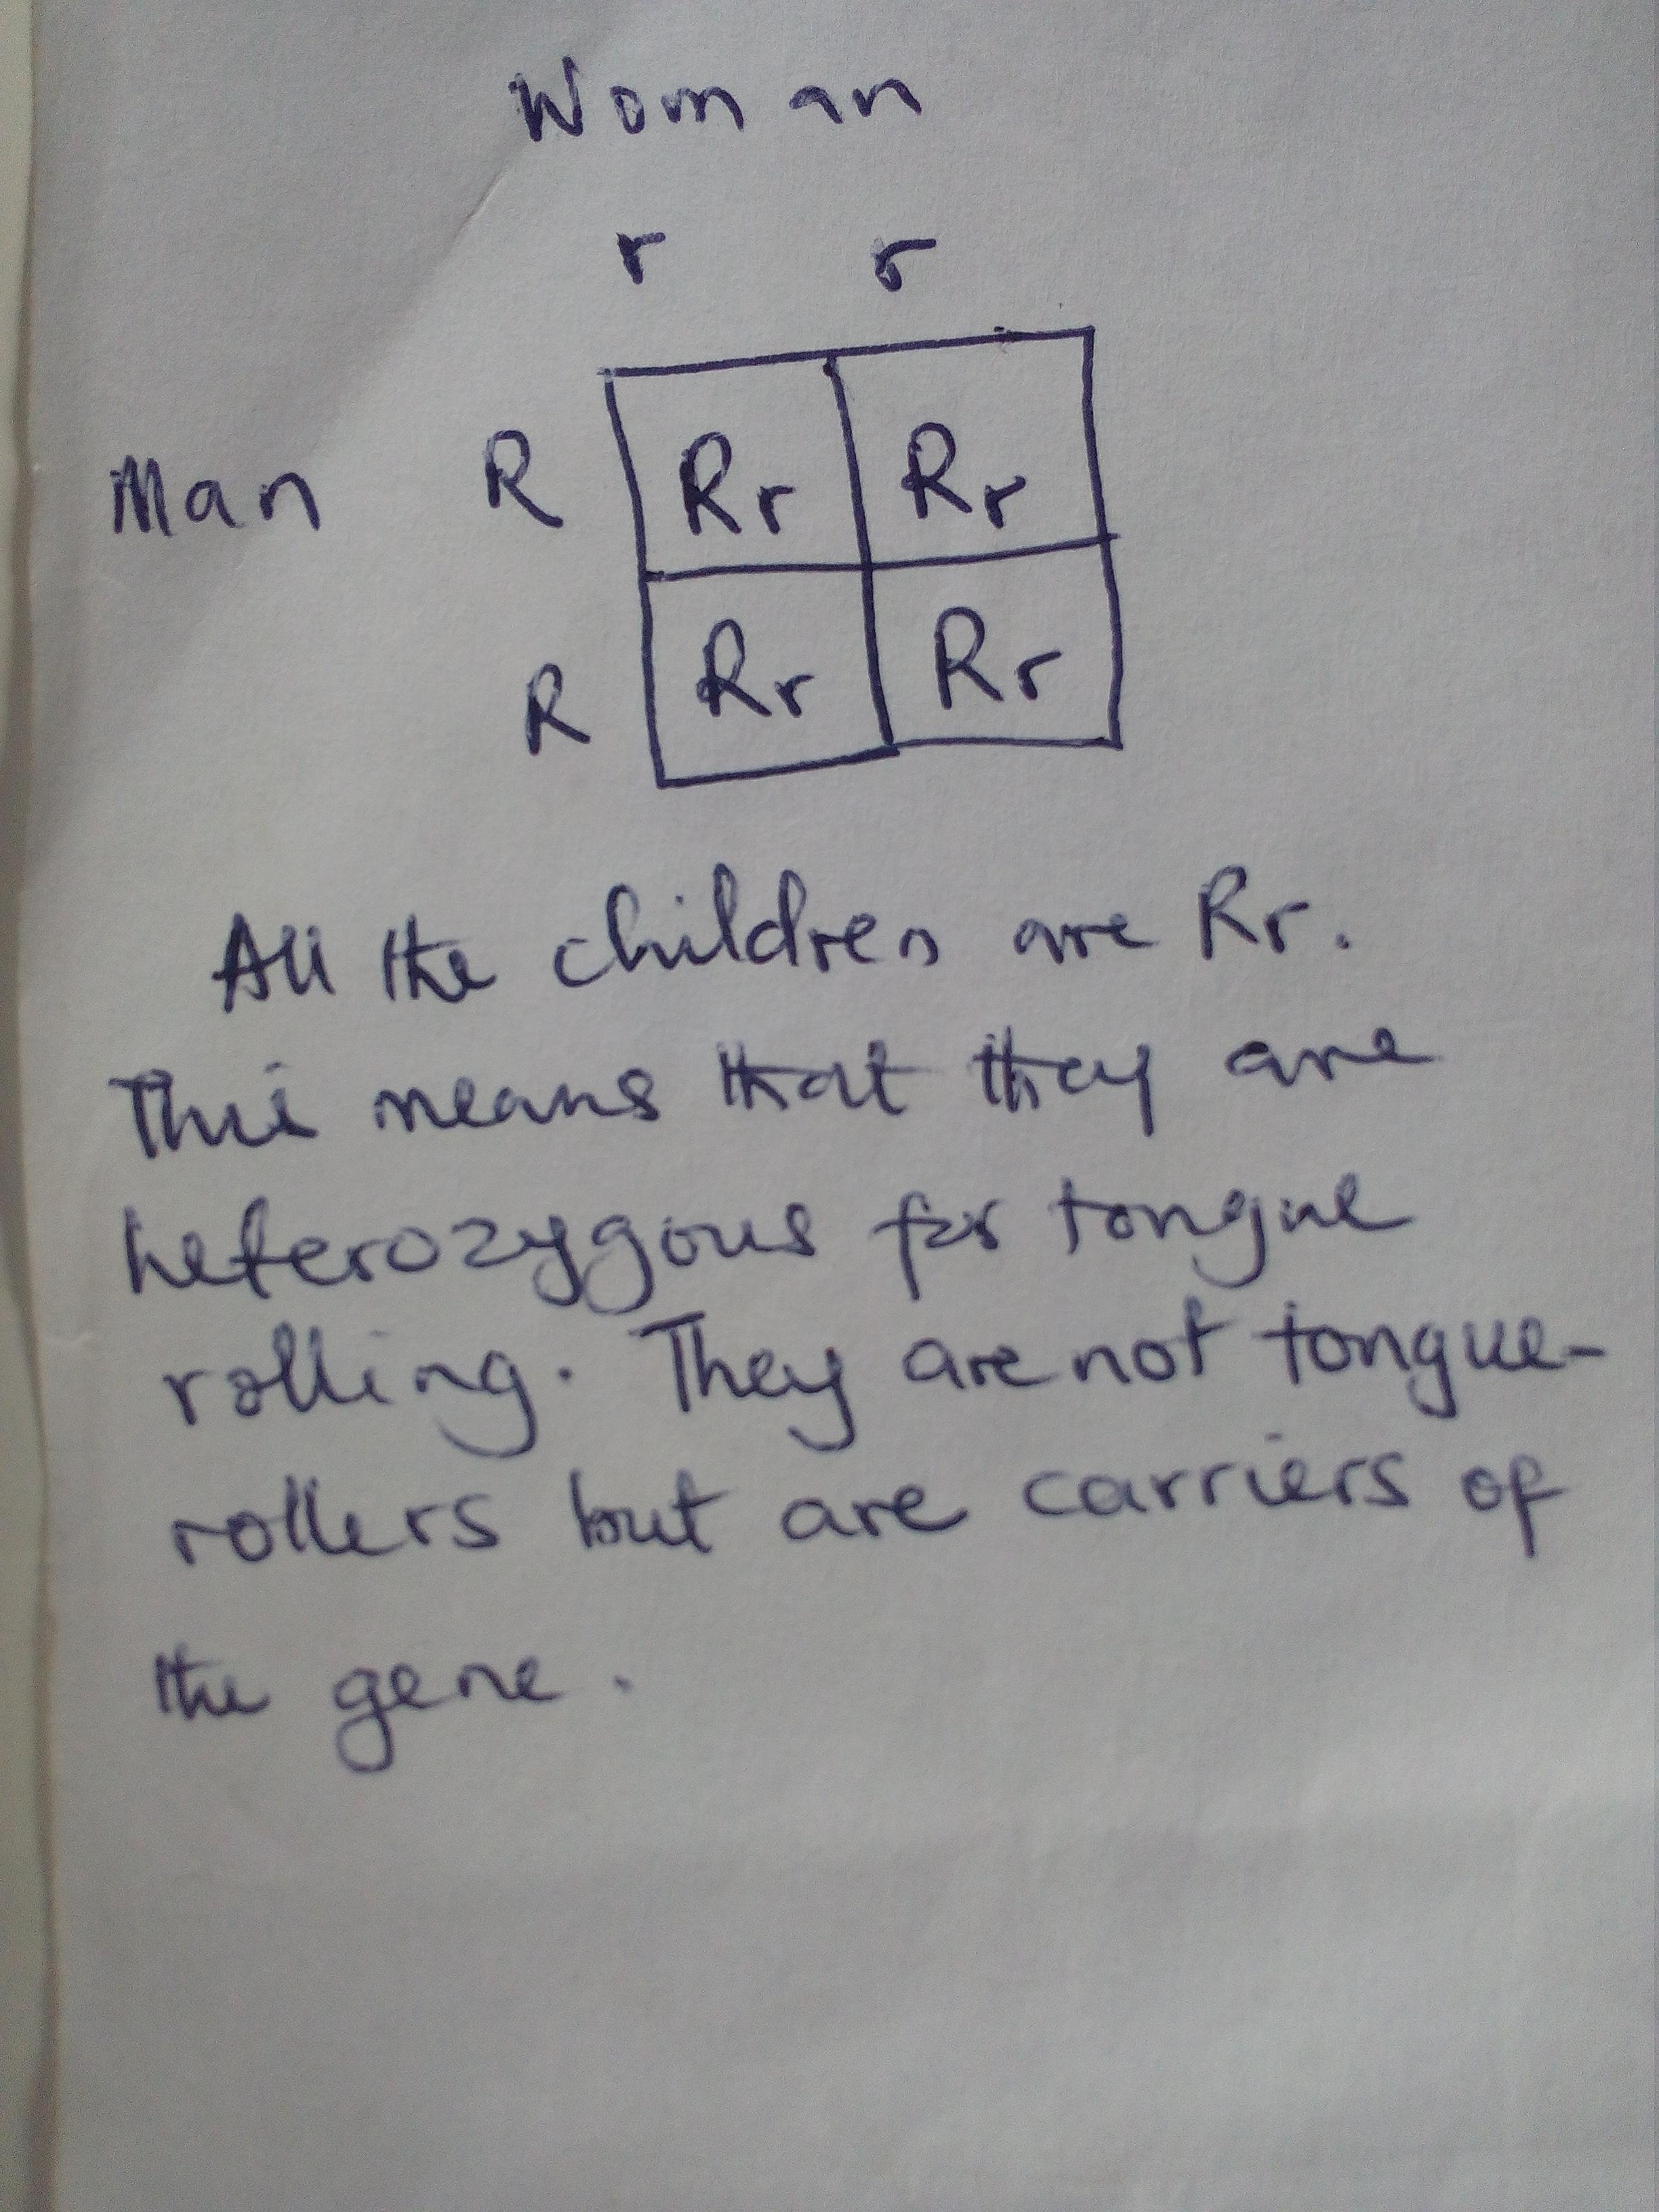 Woman
r r
Man R Rr Rr
R Rr Rr
All the children are Rr.
This means that they are
heterozygous for tongue
rolling. They are not tongue-
rollers but are carriers of
the gene.